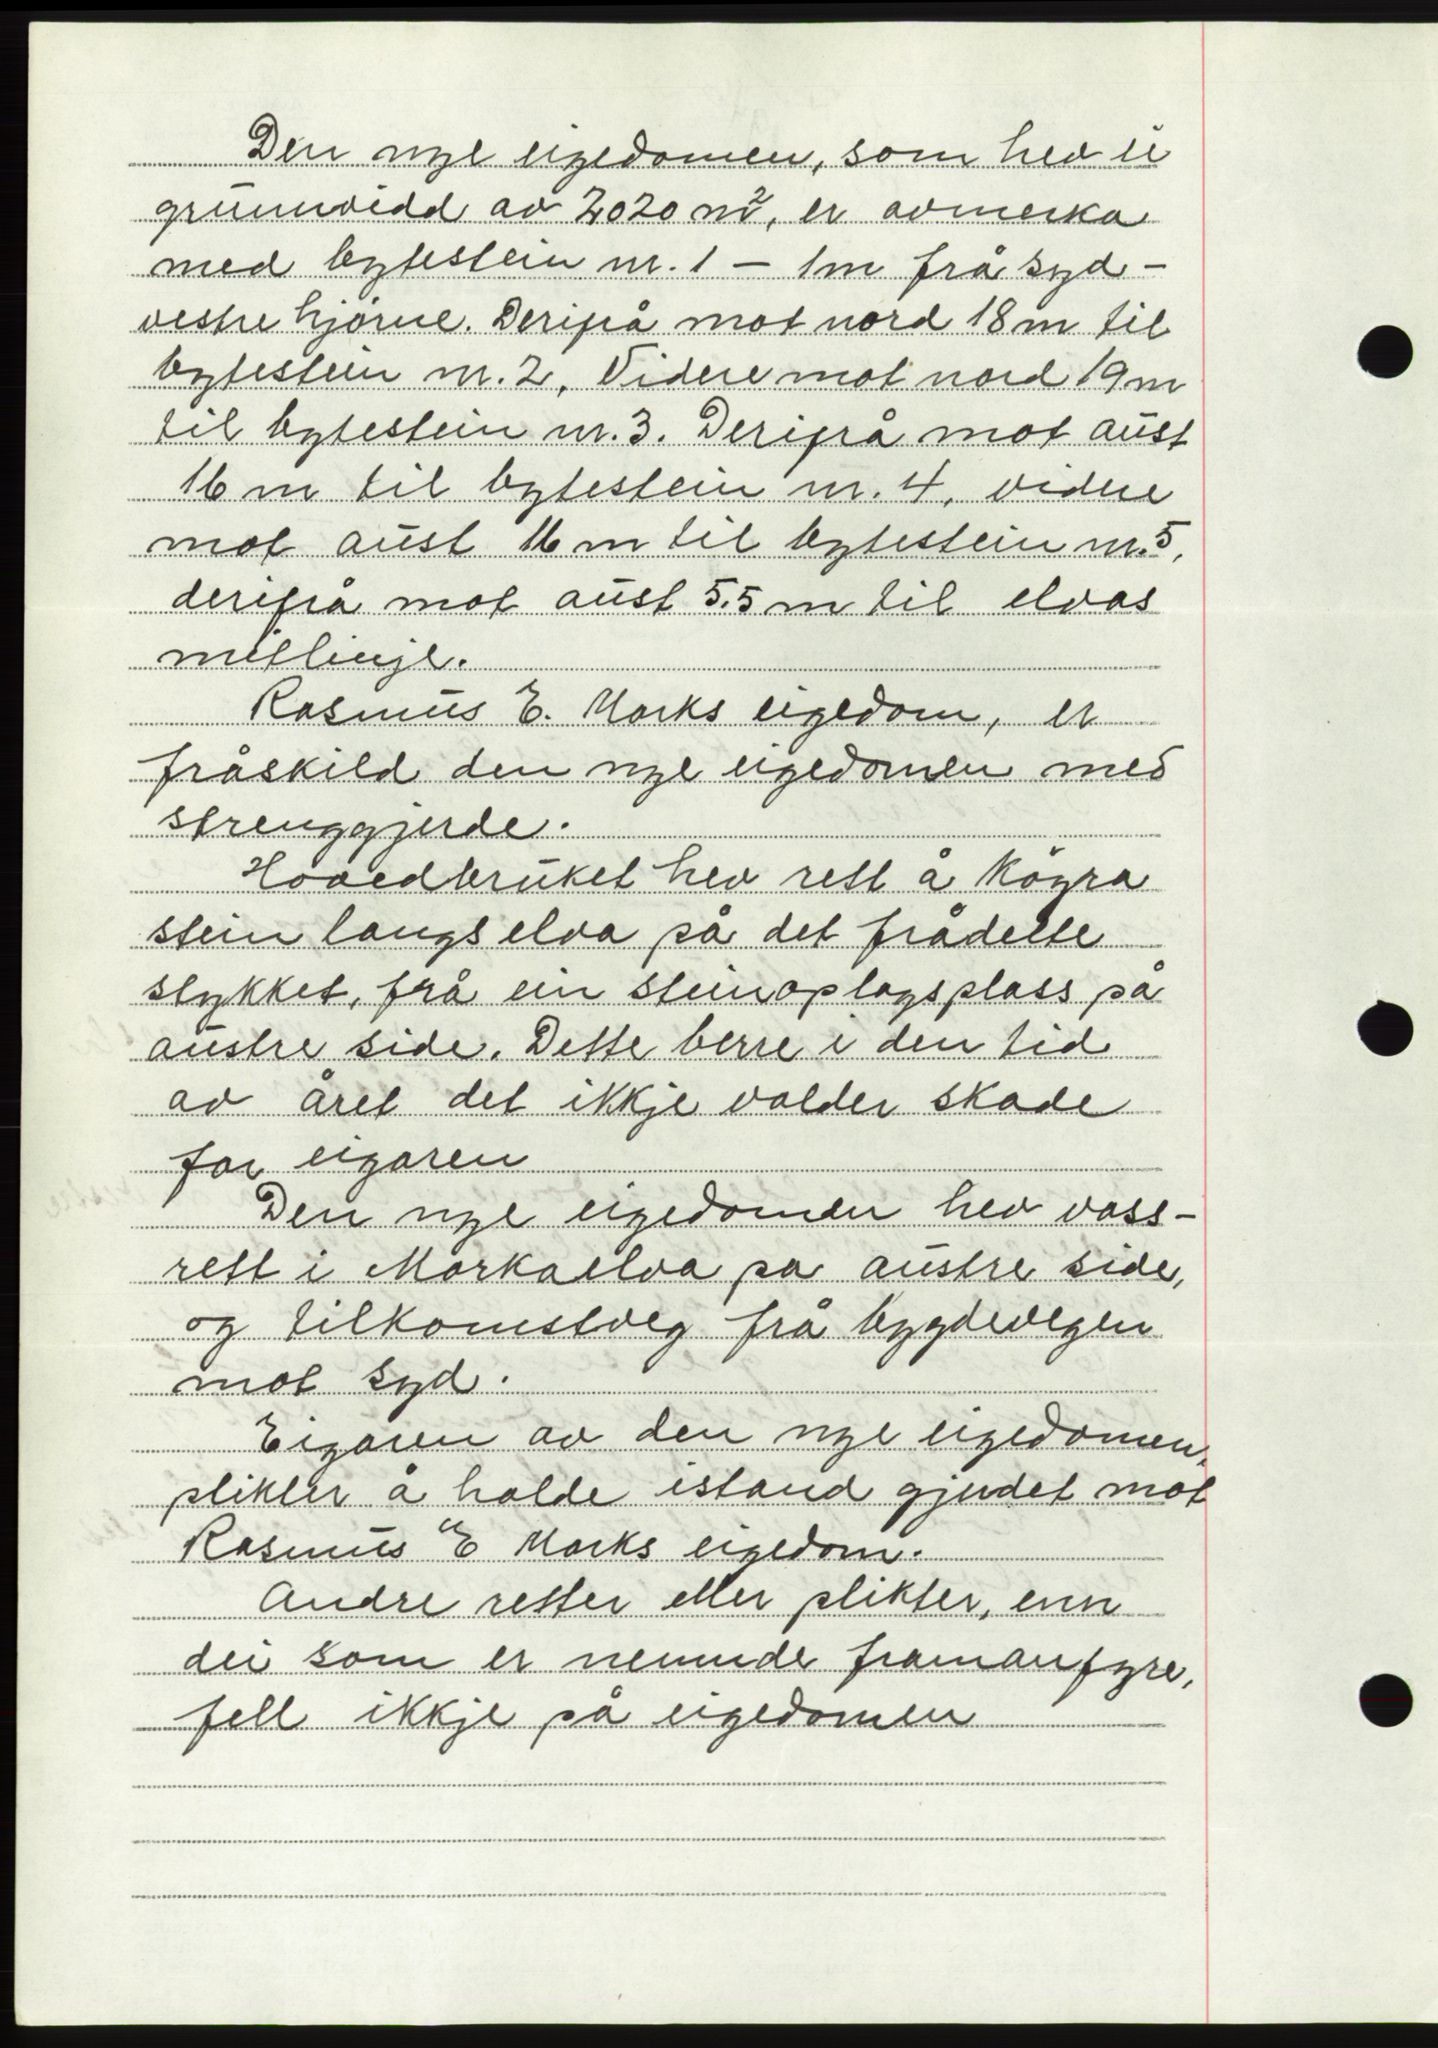 Den nye eigedomen, som hev ei
grunnvidd av 2020 m², er avmerka
med bytestein nr. 1 – 1m frå syd-
vestre hjörne. Derifrå mot nord 18 m til
bytestein nr. 2, Videre mot nord 19 m
til bytestein nr. 3. Derifrå mot aust
16 m til bytestein nr. 4, videre
mot aust 16 m til bytestein nr. 5,
derifrå mot aust 5.5 m til elvas
mitlinje.
Rasmus E. Marks eigedom, er
fråskild den nye eigedomen med
strenggjerde.
Hovedbruket hev rett å kögra
stein langs elva på det frådelte
stykket, frå ein steinoplagsplass på
austre side. Dette berre i den tid
av året det ikkje valder skade
for eigaren
Den nye eigedomen hev vass-
rett i Markaelva pa austre side,
og tilkomstveg frå bygdevegen
mot syd.
Eigaren av den nye eigedomen,
plikter å halde istand gjerdet mot
Rasmus E Marks eigedom.
Andre retter eller plikter, enn
dei som er nemnde framanfyre,
fell ikkje på eigedomen